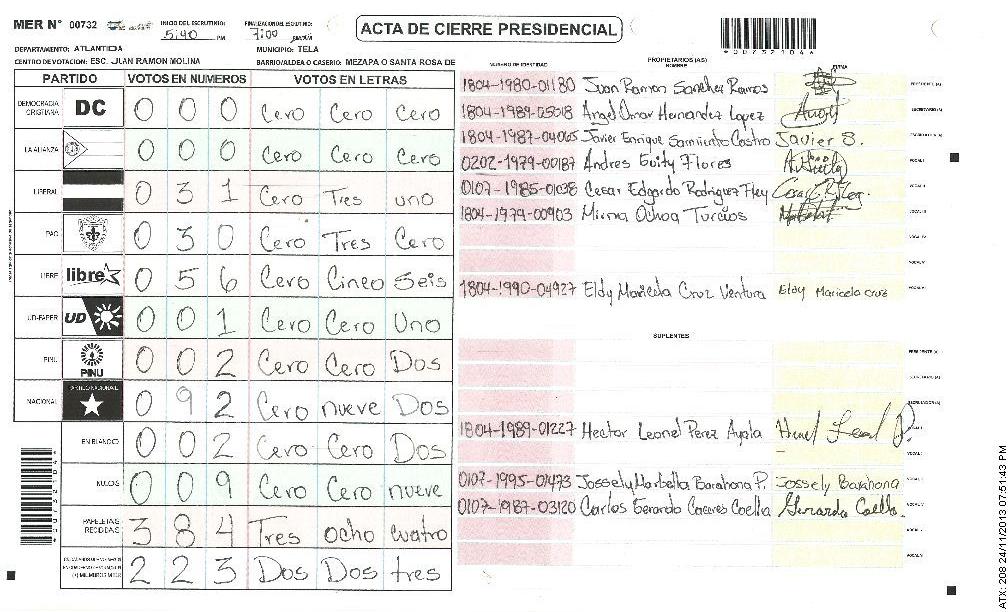 MER N° 00732 INICIO DEL ESCRUTINIO: 5:40 PM FINALIZACION DEL ESCRUTINIO: 7:00 ACTA DE CIERRE PRESIDENCIAL
DEPARTAMENTO: ATLANTIDA MUNICIPIO: TELA
CENTRO DE VOTACION: ESC. JUAN RAMON MOLINA BARRIO/ALDEA O CASERIO: MEZAPA O SANTA ROSA DE
PARTIDO VOTOS EN NUMEROS VOTOS EN LETRAS
DEMOCRACIA CRISTIANA DC 0 0 0 Cero Cero Cero
LA ALIANZA 0 0 0 Cero Cero Cero
LIBERAL 0 3 1 Cero Tres uno
PAC 0 3 0 Cero Tres Cero
LIBRE libre 0 5 6 Cero Cinco Seis
UD-FAPER UD 0 0 1 Cero Cero Uno
PINU PINU 0 0 2 Cero Cero Dos
NACIONAL PARTIDO NACIONAL 0 9 2 Cero nueve Dos
EN BLANCO 0 0 2 Cero Cero Dos
NULOS 0 0 9 Cero Cero nueve
PAPELETAS RECIBIDAS 3 8 4 Tres ocho cuatro
2 2 3 Dos Dos tres
NUMERO DE IDENTIDAD PROPIETARIOS (AS) NOMBRE FIRMA
1804-1980-01180 Juan Ramon Sanchez Ramos PRESIDENTE (A)
1804-1989-05018 Angel Omar Hernandez Lopez SECRETARIO (A)
1804-1987-04065 Javier Enrique Sarmiento Castro Javier S.
0202-1979-00187 Andres Guity Flores VOCAL I
0107-1985-01038 Cesar Edgardo Rodriguez Fley VOCAL II
1804-1979-00903 Mirna Ochoa Turcios VOCAL III
VOCAL IV
1804-1990-04927 Eldy Maricela Cruz Ventura Eldy Maricela Cruz VOCAL V
SUPLENTES
PRESIDENTE (A)
SECRETARIO (A)
1804-1989-01227 Hector Leonel Perez Ayala VOCAL I
VOCAL II
0107-1995-01473 Jossely Marbella Barahona P. Jossely Barahona
0107-1987-03120 Carlos Gerardo Caceres Coello Gerardo Coello.
ATX: 208 24/11/2013 07:51:43 PM